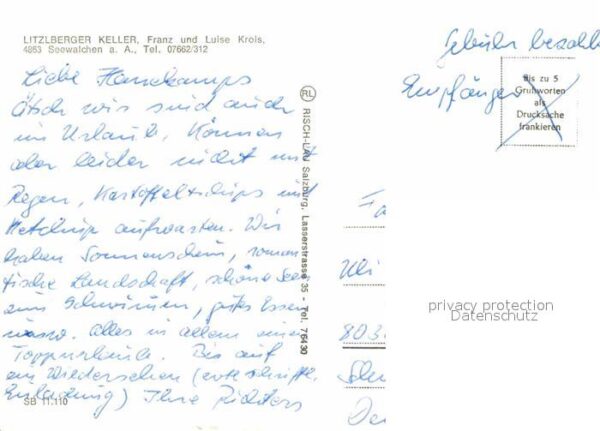 LITZLBERGER KELLER, Franz und Luise Krois,
4863 Seewalchen a. A., Tel. 07662/312
Liebe Hanekamps
Ätsch wir sind auch
im Urlaub. Können
aber leider nicht mit
Regen, Kartoffelchips mit
Ketchup aufwarten. Wir
haben Sonnenschein, roman
tische Landschaft, schöne Seen
zum Schwimmen, gutes Essen
usw. Alles in allem einen
Toppurlaub. Bis auf
ein Wiedersehen (evtl schriftl.
Einladung) Ihre Richters
SB 11.110
RL RISCH-LAU Salzburg, Lasserstrasse 35 - Tel. 76430
Gebühr bezahlt
Empfänger
Bis zu 5
Grußworten
als
Drucksache
frankieren
Fa
Uli
803
Sch
privacy protection
Datenschutz